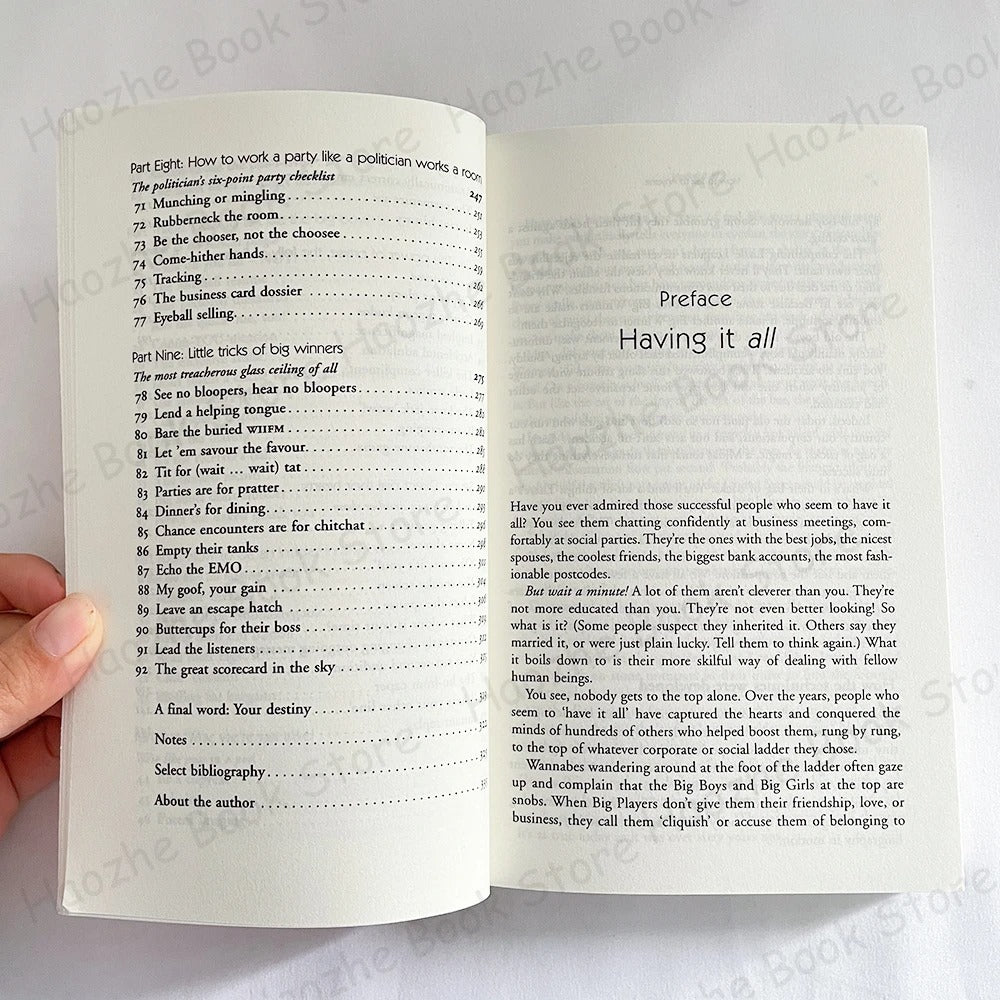 Part Eight: How to work a party like a politician works a room
The politician's six-point party checklist 247
71 Munching or mingling 251
72 Rubberneck the room 253
73 Be the chooser, not the choosee 255
74 Come-hither hands 259
75 Tracking 262
76 The business card dossier 266
77 Eyeball selling 269
Part Nine: Little tricks of big winners
The most treacherous glass ceiling of all 275
78 See no bloopers, hear no bloopers 277
79 Lend a helping tongue
80 Bare the buried WIIFM
81 Let 'em savour the favour
82 Tit for (wait … wait) tat 288
83 Parties are for pratter
84 Dinner's for dining 293
85 Chance encounters are for chitchat
86 Empty their tanks 298
87 Echo the EMO
88 My goof, your gain 304
89 Leave an escape hatch 306
90 Buttercups for their boss
91 Lead the listeners
92 The great scorecard in the sky
A final word: Your destiny
Notes
Select bibliography
About the author
Preface
Having it all
Have you ever admired those successful people who seem to have it
all? You see them chatting confidently at business meetings, com-
fortably at social parties. They're the ones with the best jobs, the nicest
spouses, the coolest friends, the biggest bank accounts, the most fash-
ionable postcodes.
But wait a minute! A lot of them aren't cleverer than you. They're
not more educated than you. They're not even better looking! So
what is it? (Some people suspect they inherited it. Others say they
married it, or were just plain lucky. Tell them to think again.) What
it boils down to is their more skilful way of dealing with fellow
human beings.
You see, nobody gets to the top alone. Over the years, people who
seem to 'have it all' have captured the hearts and conquered the
minds of hundreds of others who helped boost them, rung by rung,
to the top of whatever corporate or social ladder they chose.
Wannabes wandering around at the foot of the ladder often gaze
up and complain that the Big Boys and Big Girls at the top are
snobs. When Big Players don't give them their friendship, love, or
business, they call them 'cliquish' or accuse them of belonging to
Haozhe Book Store